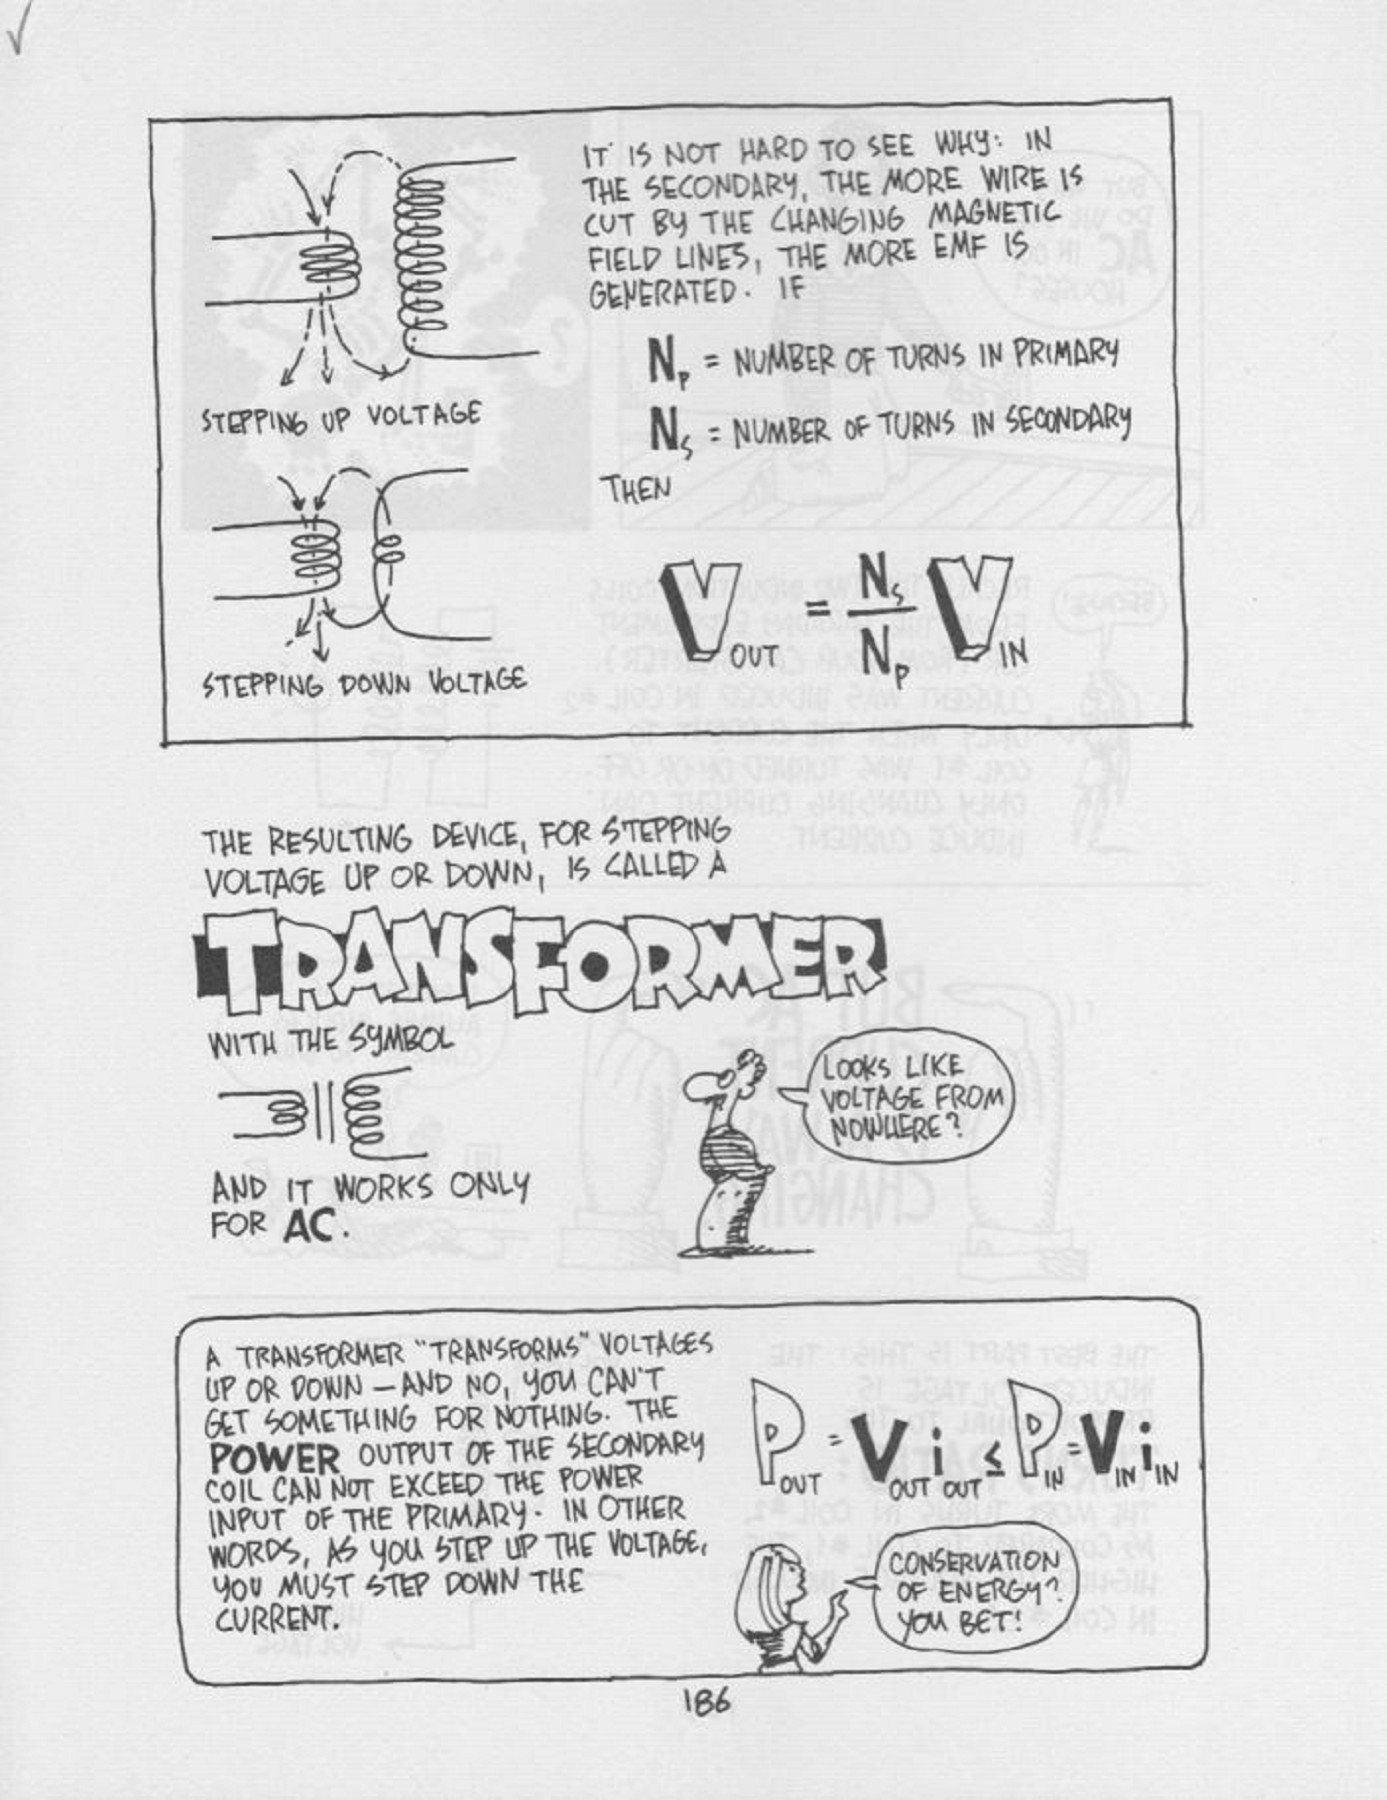 IT IS NOT HARD TO SEE WHY: IN
THE SECONDARY, THE MORE WIRE IS
CUT BY THE CHANGING MAGNETIC
FIELD LINES, THE MORE EMF IS
GENERATED. IF
Np = NUMBER OF TURNS IN PRIMARY
Ns = NUMBER OF TURNS IN SECONDARY
THEN
V OUT = Ns/Np V IN
STEPPING UP VOLTAGE
STEPPING DOWN VOLTAGE
THE RESULTING DEVICE, FOR STEPPING
VOLTAGE UP OR DOWN, IS CALLED A
TRANSFORMER
WITH THE SYMBOL
AND IT WORKS ONLY
FOR AC.
LOOKS LIKE
VOLTAGE FROM
NOWHERE?
A TRANSFORMER "TRANSFORMS" VOLTAGES
UP OR DOWN — AND NO, YOU CAN'T
GET SOMETHING FOR NOTHING. THE
POWER OUTPUT OF THE SECONDARY
COIL CAN NOT EXCEED THE POWER
INPUT OF THE PRIMARY. IN OTHER
WORDS, AS YOU STEP UP THE VOLTAGE,
YOU MUST STEP DOWN THE
CURRENT.
P OUT = V OUT i OUT ≤ P IN = V IN i IN
CONSERVATION
OF ENERGY?
YOU BET!
186